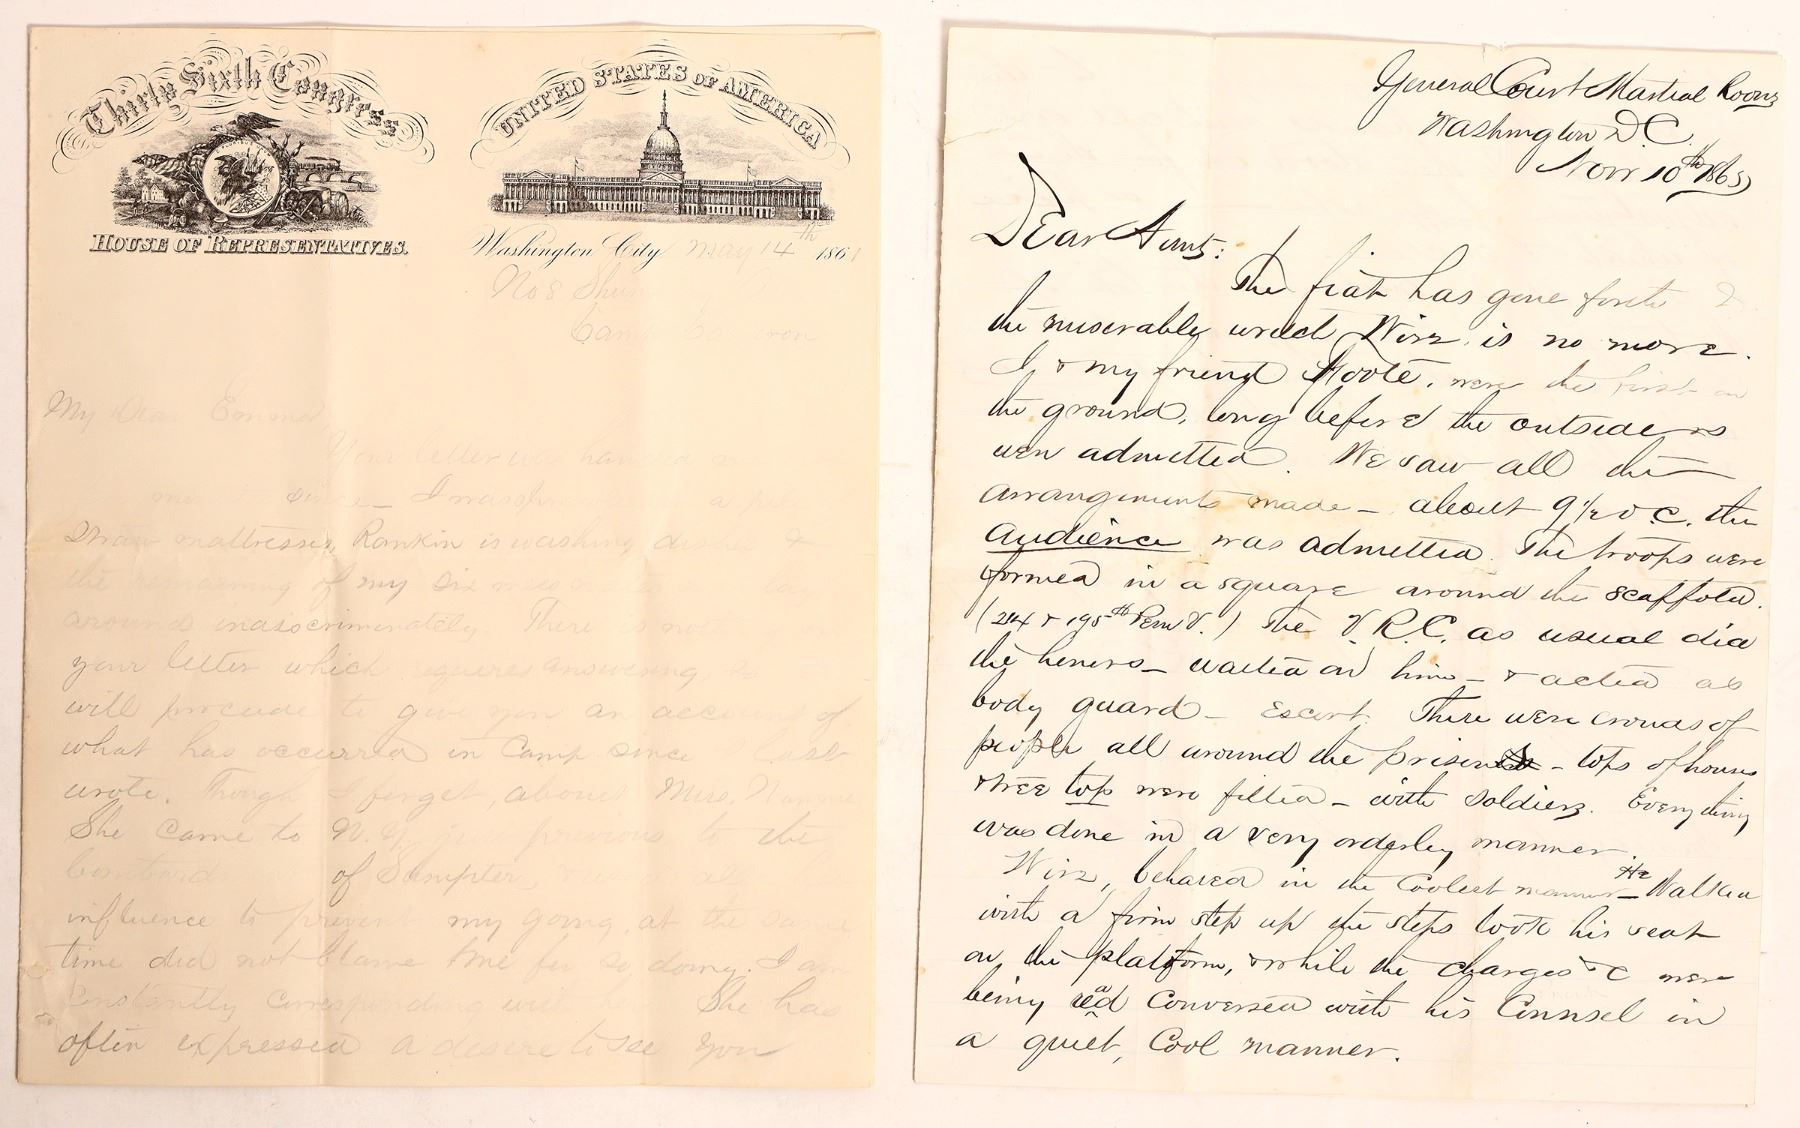 Thirty Sixth Congress
HOUSE OF REPRESENTATIVES.
UNITED STATES OF AMERICA
Washington City May 14th 1861
No 8
My Dear Emma
Your letter was
since _ I was
Straw mattresses, Rankin is washing dishes &
the remaining of my six
around inasocriminately. There is not
your letter which requires answering
will procede to give you an account of
what has occurred in Camp since last
wrote. Though I forget, about Miss
She came to N.Y. just previous to the
of Sumpter,
influence to prevent my going, at the same
time did not blame me for so doing. I am
Constantly corresponding with her She has
often expressed a desire to see you
General Court Martial Rooms
Washington D.C.
Nov 10th 1865
Dear Aunt:
The fiat has gone forth &
the miserable wretch Wirz is no more.
I & my friend Foote, were the first on
the ground, long before the outsiders
were admitted. We saw all the
arrangements made _ about 9 1/2 o.c. the
Audience was admitted. The troops were
formed in a square around the scaffold.
(214 & 195th Penn V.) The V.R.C. as usual did
the honors _ waited on him _ & acted as
body guard _ Escort. There were crowds of
people all around the prison _ tops of houses
& tree top were filled _ with soldiers. Every thing
was done in a very orderly manner
Wirz, behaved in the Coolest manner _ He Walked
with a firm step up the steps took his seat
on the platform, & while the charges &c were
being read Conversed with his Counsel in
a quiet, Cool manner.